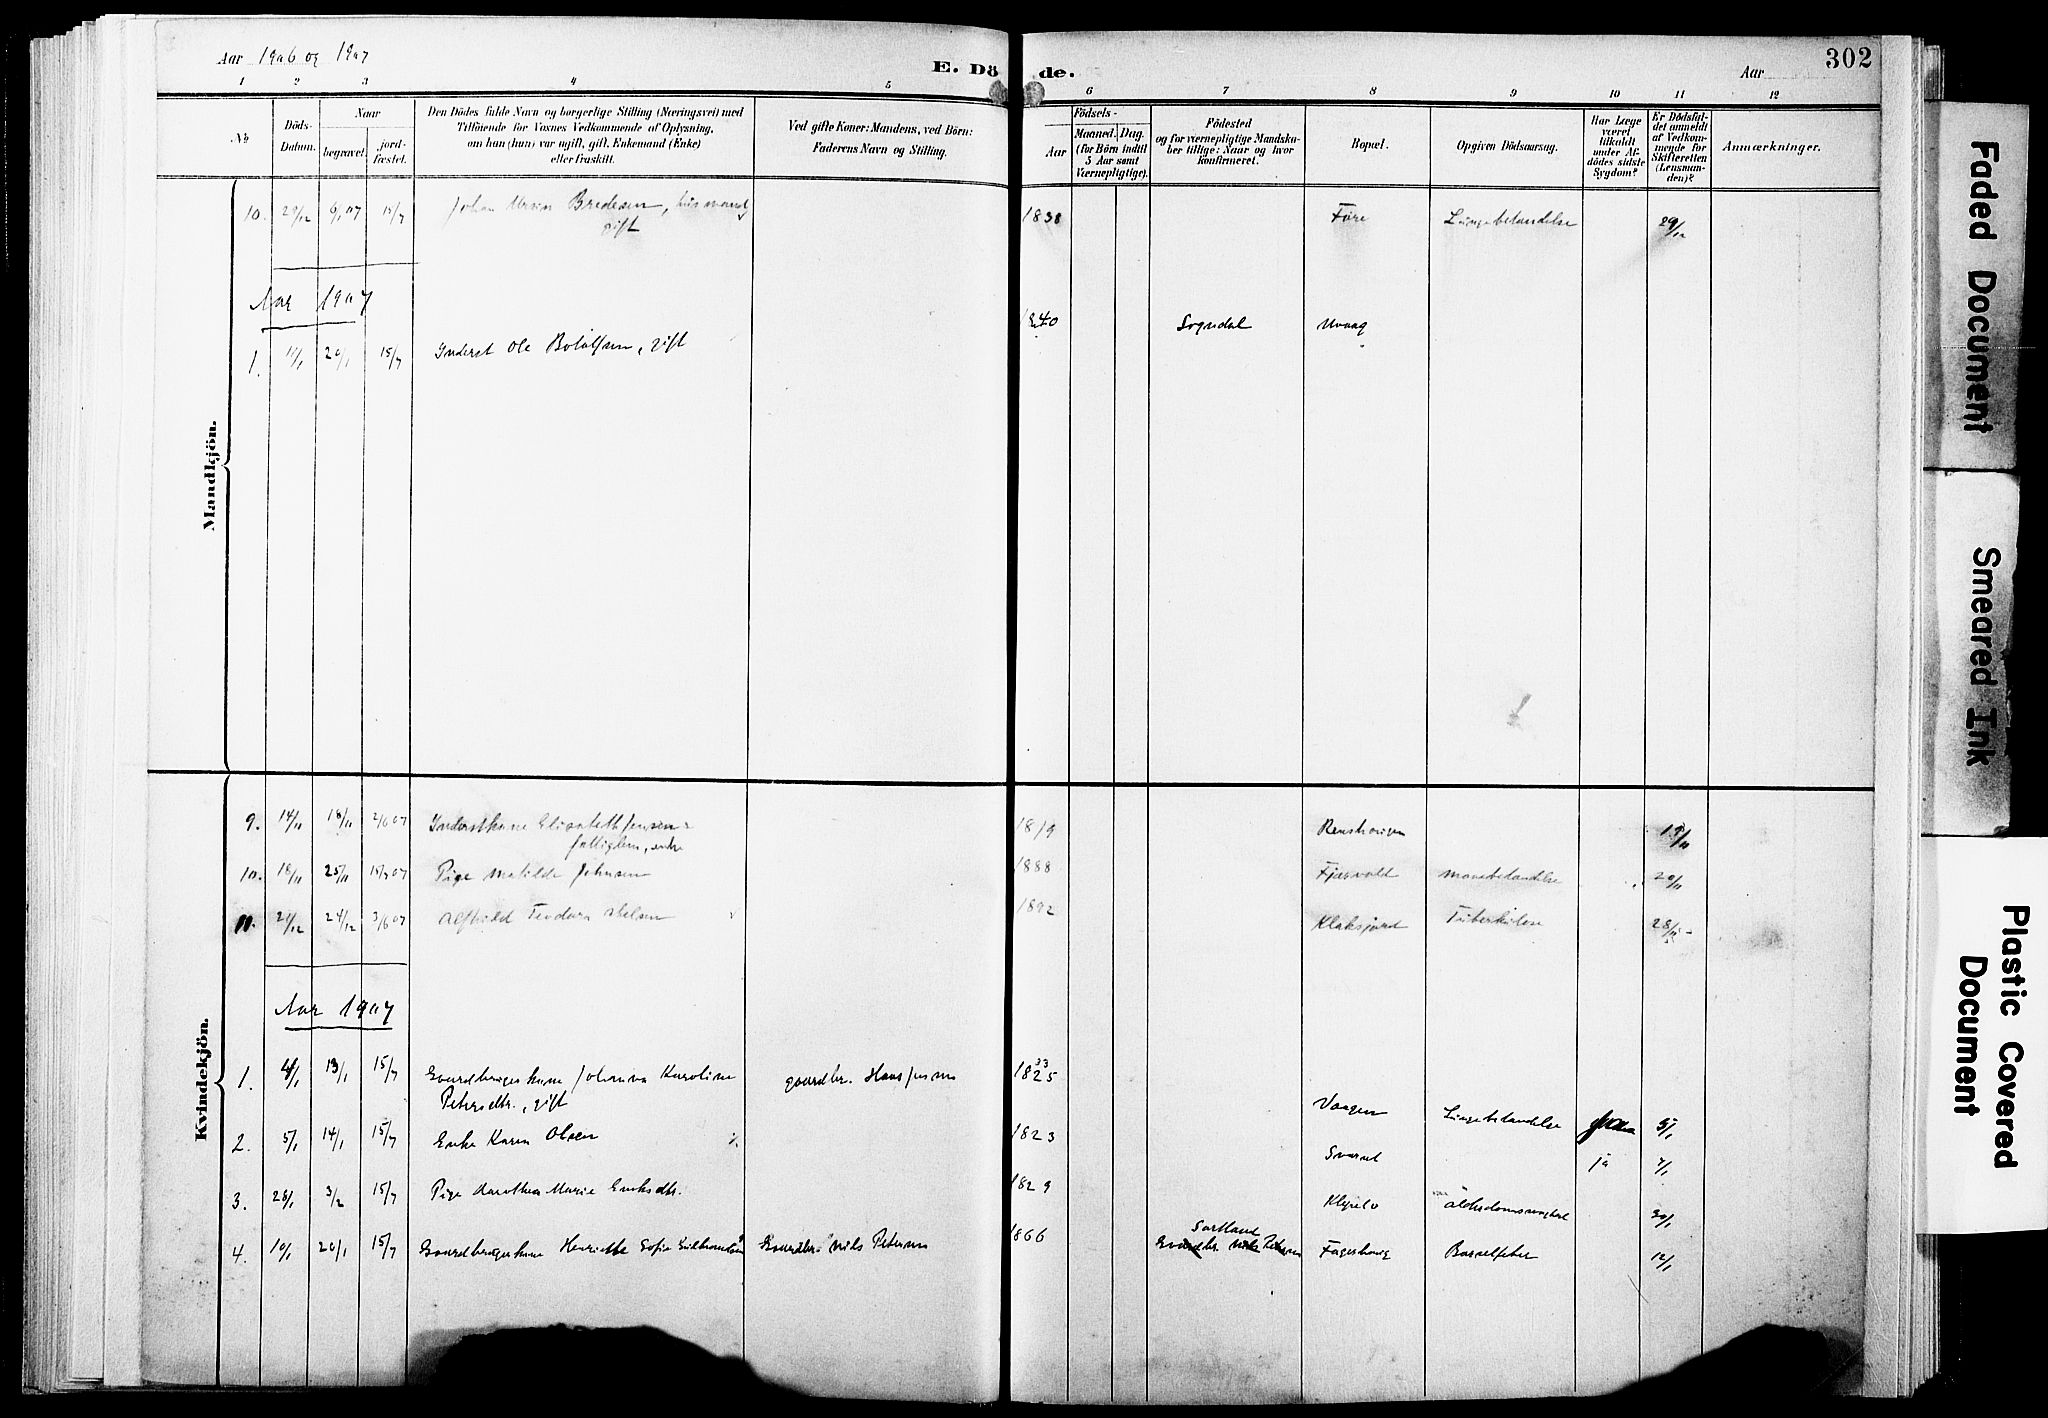 Aar 1906 og 1907
E. Dö de.
Aar
302
1 2 3 4 5 6 7 8 9 10 11 12
No.
Döds-
Datum.
Naar
begravet.
jord-
fæstet.
Den Dödes fulde Navn og borgerlige Stilling (Næringsvei) med
Tilföiende for Voxnes Vedkommende af Oplysning,
om han (hun) var ugift, gift, Enkemand (Enke)
eller fraskilt.
Ved gifte Koner: Mandens, ved Börn:
Faderens Navn og Stilling.
Födsels-
Aar
Maaned. Dag.
(for Börn indtil
5 Aar samt
Værnepligtige).
Födested
og for værnepligtige Mandska-
ber tillige: Naar og hvor
konfirmeret.
Bopæl.
Opgiven Dödsaarsag.
Har Læge
været
tilkaldt
under Af-
dödes sidste
Sygdom?
Er Dödsfal-
det anmeldt
af Vedkom-
mende for
Skifteretten
(Lensman-
den)?
Anmærkninger.
Mandkjön.
10. 29/12 6/1 07 15/7 Johan Bredesen, husmand, 1838 Føre Lungebetændelse 29/12
gift
Aar 1907
1. 20/1 15/7 Inderst Ole Botolfsen, gift 1840 Sogndal
Kvindekjön.
9. 14/11 18/11 2/6 07 Inderstkone Elisabeth Jensen 1819
fattiglem, enke
10. 18/11 25/11 15/7 07 Pige Matilde Johnsen 1888 20/11
11. 24/12 3/6 07 Teodora 1892 Klaksjord Tuberkulose 28/12
Aar 1907
1. 4/1 13/1 15/7 Gaardbrugerkone Johanna Karoline gaardbr. Hans Jensen 1825 33
Petersdtr., gift Vaagen Lungebetændelse 5/1
2. 5/1 14/1 15/7 Enke Karen Olsen 1823 ja 7/1
3. 28/1 3/2 15/7 Pige Dorothea Marie Eriksdtr. 1829 30/1
4. 10/1 20/1 15/7 Gaardbrugerkone Henriette Sofie Gaardbr. Nils Petersen 1866 Sortland
Gaardbr. Nils Petersen Barselfeber 12/1
Faded Document
Smeared Ink
Plastic Covered
Document